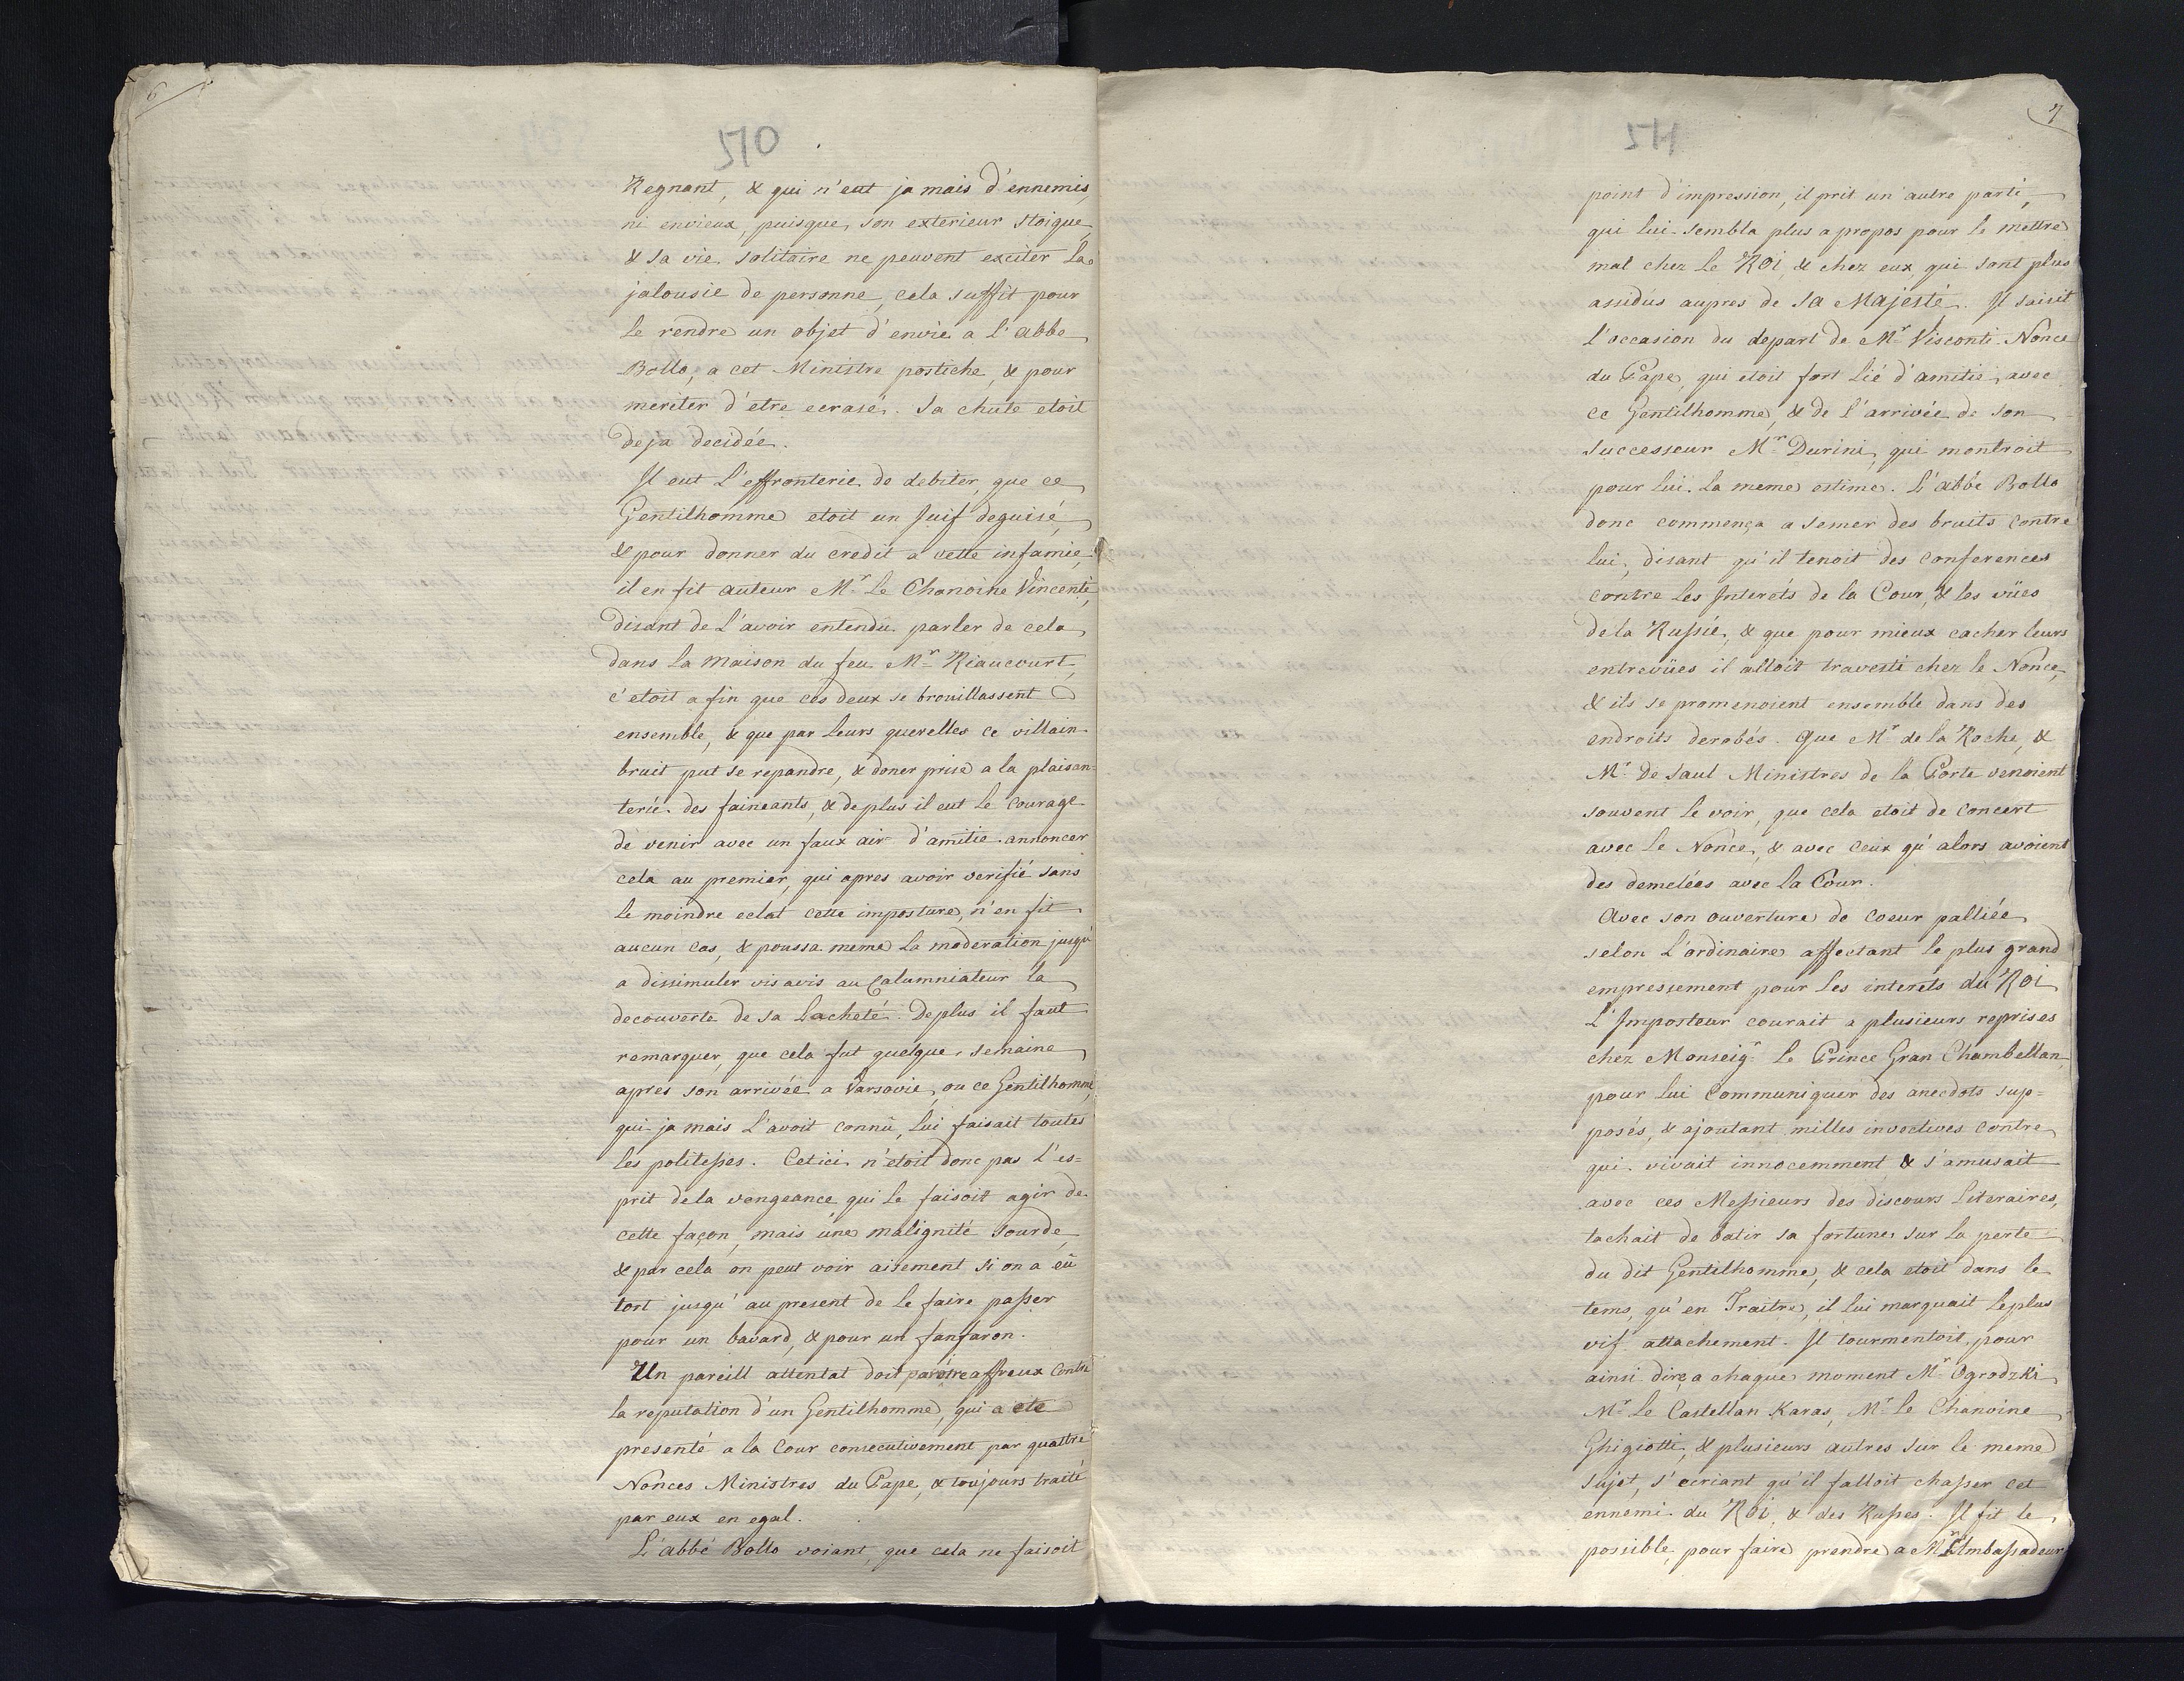 6
510
Regnant, & qui n'eut jamais d'ennemis,
ni envieux, puisque, son exterieur stoique,
& sa vie solitaire ne peuvent exciter la
jalousie de personne, cela suffit pour
le rendre un objet d'envie a l'abbe
Bollo, a cet Ministre postiche, & pour
meriter d'etre ecrasé. Sa chute etoit
deja decidée.
Il eut l'effronterie de debiter, que ce
Gentilhomme etoit un Juif deguisé,
& pour donner du credit a cette infamie,
il en fit auteur Mr. le Chanoine Vincenti,
disant de l'avoir entendu parler de cela
dans la maison du feu Mr. Riaucourt,
c'etoit afin que ces deux se brouillassent
ensemble, & que par leurs querelles ce villain
bruit put se repandre, & doner prise a la plaisan-
terie des faineants, & de plus il eut le courage
de venir avec un faux air d'amitie annoncer
cela au premier, qui apres avoir verifié sans
le moindre eclat cette imposture, n'en fit
aucun cas, & poussa meme la moderation jusqu'
a dissimuler vis avis au Calumniateur la
decouverte de sa lacheté. De plus il faut
remarquer, que cela fut quelque semaine
apres son arrivée a Varsovie, ou ce Gentilhomme,
qui jamais l'avoit connu, lui faisait toutes
les politesses. Cetici n'etoit donc pas l'es=
prit de la vengeance qui le faisoit agir de
cette façon, mais une malignité sourde,
& par cela on peut voir aisement si on a eü
tort jusqu' au present de le faire passer
pour un bavard, & pour un fanfaron.
Un pareill attentat doit parôtre affreux contre
la reputation d'un Gentilhomme, qui a eté
presenté a la Cour consecutivement par quattre
Nonces Ministres du Pape, & toujours traité
par eux en egal.
L'abbé Bollo voiant, que cela ne faisoit
7
511
point d'impression, il prit un autre parti,
qui lui sembla plus a propos pour le mettre
mal chez le ROI, & chez eux, qui sont plus
assidus aupres de SA Majesté. Il saisit
l'occasion du depart de Mr. Visconti Nonce
du Pape, qui etoit fort lié d'amitié avec
ce Gentilhomme, & de l'arrivée de son
successeur Mr. Durini, qui montroit
pour lui la meme estime. L'abbé Bollo
donc commença a semer des bruits contre
lui, disant qu'il tenoit des conferences
contre les Interéts de la Cour, & les vües
de la Russie, & que pour mieux cacher leurs
entrevües il alloit travesti chez le Nonce,
& ils se promenoient ensemble dans des
endroits derobés. Que Mr. de la Roche, &
Mr. De Saul Ministres de la Porte venoient
souvent le voir, que cela etoit de concert
avec le Nonce, & avec ceux qu' alors avoient
des demelées avec la Cour.
Avec son ouverture de coeur palliée,
selon l'ordinaire affectant le plus grand
empressement pour les interets du ROI
L'Imposteur courait a plusieurs reprises
chez Monseigr. le Prince Gran Chambellan,
pour lui communiquer des anecdots sup=
posés, & ajoutant milles invectives contre
qui vivait innocemment & s'amusait
avec ces Messieurs des discours literaires,
tachait de batir sa fortune sur la perte
du dit Gentilhomme, & cela etoit dans le
tems, qu'en Traitre, il lui marquait le plus
vif attachement. Il tourmentoit, pour
ainsi dire, a chaque moment Mr. Ogrodzki,
Mr. le Castellan Karas, Mr. le Chanoine
Ghigiotti, & plusieurs autres sur le meme
sujet, s'ecriant qu'il falloit chasser cet
ennemi du ROI, & des Russes. Il fit le
possible pour faire prendre a Mr. l'Ambassadeur